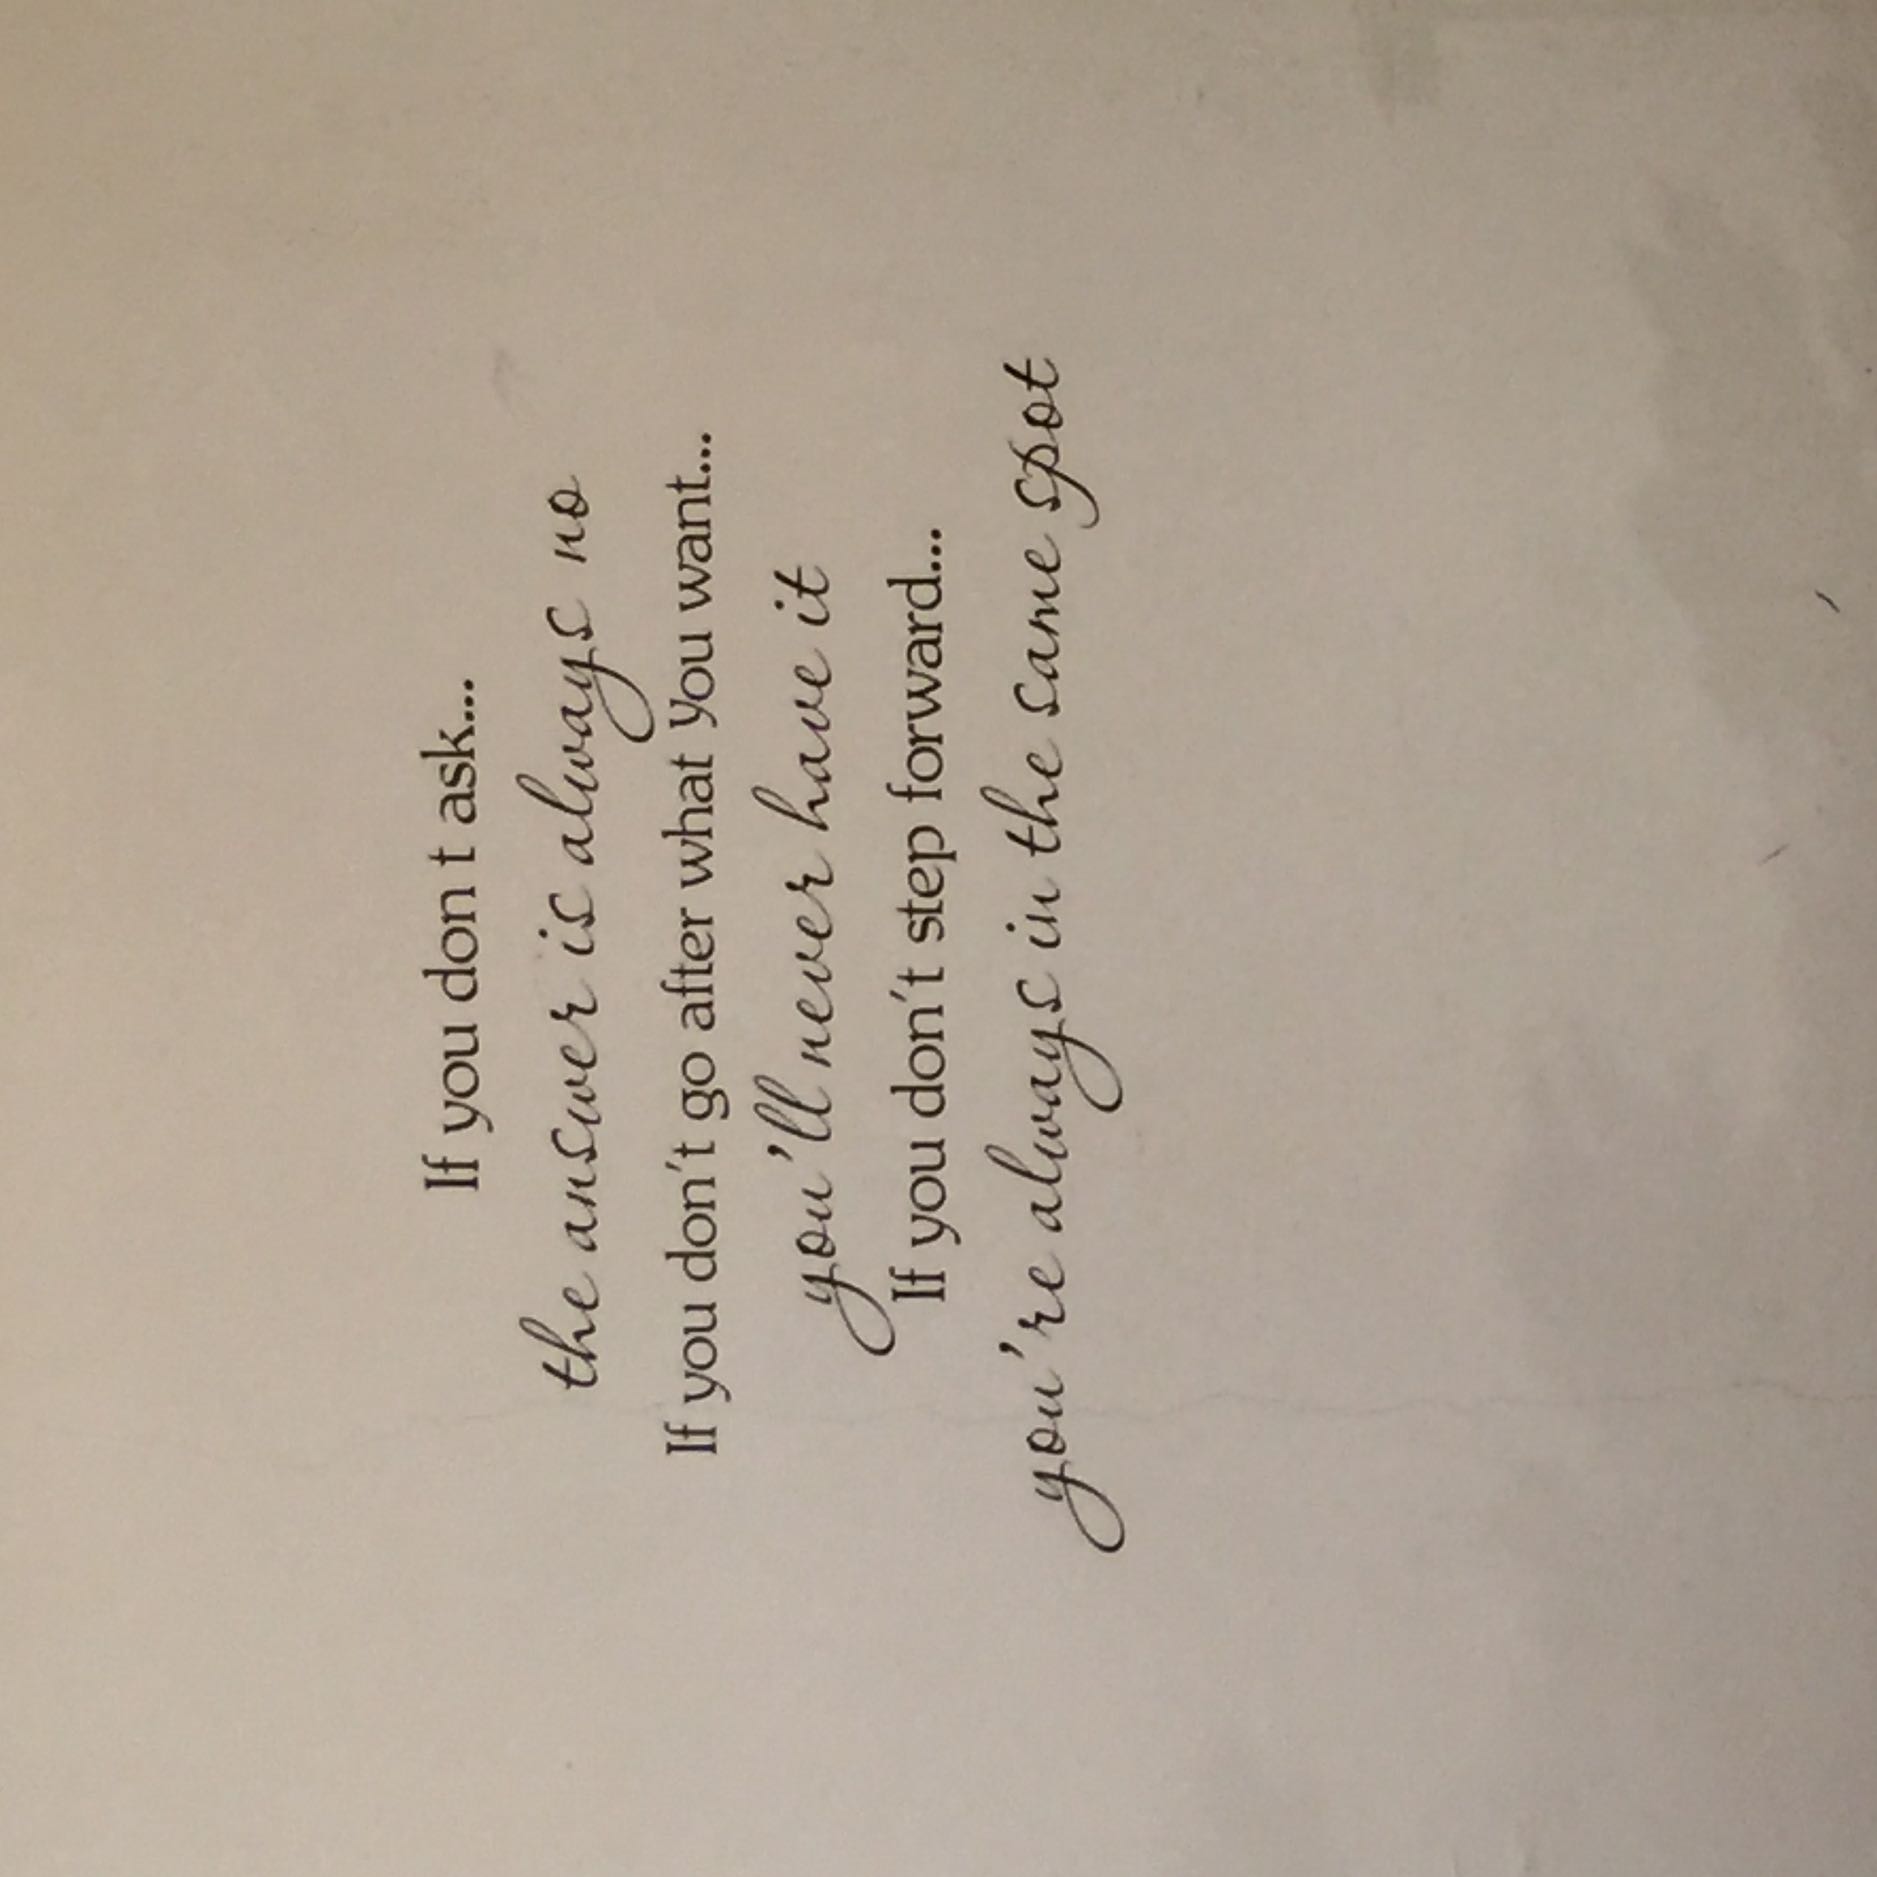 If you don t ask...
the answer is always no
If you don't go after what you want...
you'll never have it
If you don't step forward...
you're always in the same spot